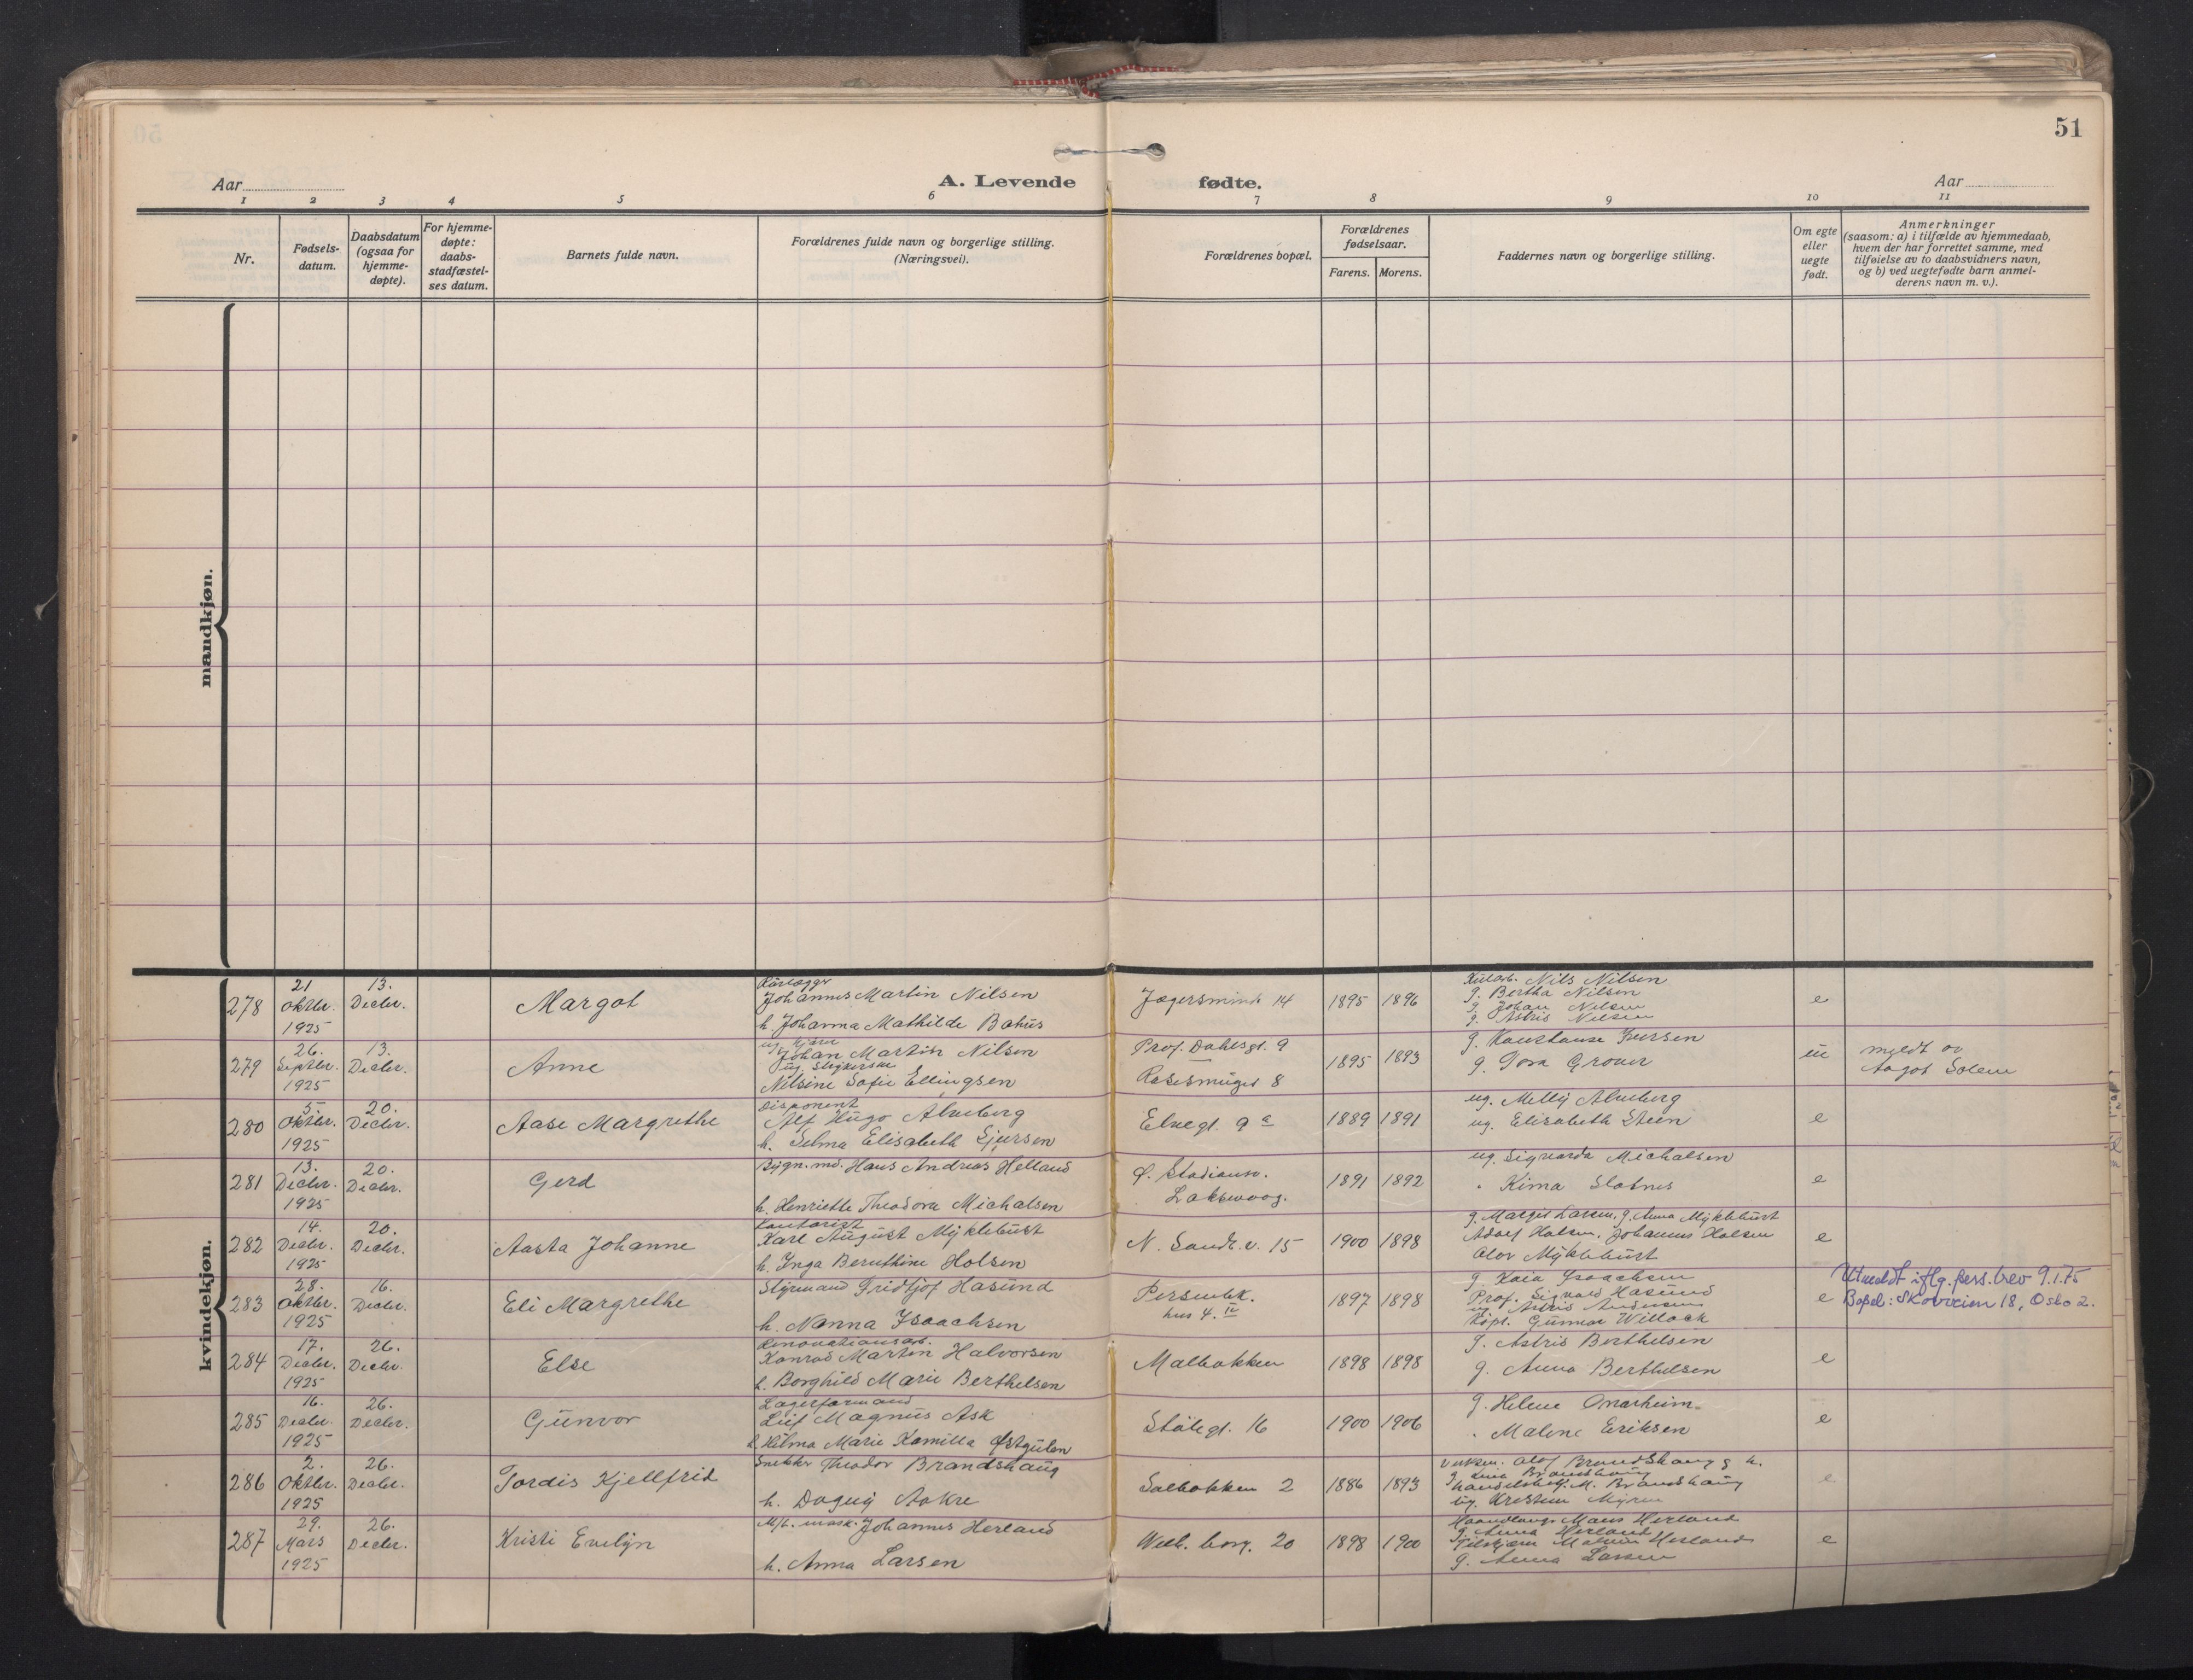 51
Aar
A. Levende fødte.
Aar
1 2 3 4 5 6 7 8 9 10 11
Nr.
Fødsels-
datum.
Daabsdatum
(ogsaa for
hjemme-
døpte).
For hjemme-
døpte:
daabs-
stadfæstel-
ses datum.
Barnets fulde navn.
Forældrenes fulde navn og borgerlige stilling.
(Næringsvei).
Forældrenes bopæl.
Forældrenes
fødselsaar.
Farens. Morens.
Faddernes navn og borgerlige stilling.
Om egte
eller
uegte
født.
Anmerkninger
(saasom: a) i tilfælde av hjemmedaab,
hvem der har forrettet samme, med
tilføielse av to daabsvidners navn,
og b) ved uegtefødte barn anmel-
derens navn m. v.).
mandkjøn.
kvindekjøn.
278
21
Oktbr.
1925
13.
Decbr.
Margot
Rørlægger
Johannes Martin Nilsen
h. Johanna Mathilde Bahus
Jægersmink 14
1895 1896
Nils Nilsen
g. Bertha Nilsen
g. Johan Nilsen
g. Astrid Nilsen
e
279
26.
Septbr.
1925
13.
Decbr.
Anne
Johan Martin Nilsen
ug. Strykerske
Nilsine Sofie Ellingsen
Prof. Dahlsgt. 9
Rosesmuget 8
1895 1893
g. Konstanse Iversen
g. Tora Groner
ue
meldt av
Aagot Solem
280
5
Oktbr.
1925
20.
Decbr.
Aase Margrethe
Disponent
Alf Hugo Alneberg
h. Selma Elisabeth Sjursen
Elvegt. 9 a
1889 1891
ug. Melly Alneberg
ug. Elisabeth Steen
e
281
13.
Decbr.
1925
20.
Decbr.
Gerd
Bygn. md. Hans Andreas Helland
h. Henriette Theodora Michalsen
Ø. Stadionv.
Laksevaag.
1891 1892
ug. Sigvarda Michalsen
" Kima Slotnes
e
282
14.
Decbr.
1925
20.
Decbr.
Aasta Johanne
Kontorist
Karl August Myklebust
h. Inga Bernthine Holsen
N. Sandv. v. 15
1900 1898
g. Margit Larsen, g. Anna Myklebust
Adolf Holsen, Johannes Holsen
Olav Myklebust
e
283
28.
Oktbr.
1925
16.
Decbr.
Eli Margrethe
Styrmand Fridtjof Hasund
h. Nanna Isaachsen
Persenbk.
hus 4. IV
1897 1898
g. Kaia Isaachsen
Prof. Sigvald Hasund
ug. Astrid Andersen
Kapt. Gunnar Willock
e
Utmeldt iflg. pers. brev 9.1.75
Bopel: Skovveien 18, Oslo 2.
284
17.
Decbr.
1925
26.
Decbr.
Else
Renovationsarb.
Konrad Martin Halvorsen
h. Borghild Marie Berthelsen
Malbakken
1898 1898
g. Astrid Berthelsen
g. Anna Berthelsen
e
285
16.
Decbr.
1925
26.
Decbr.
Gunvor
Lagerformand
Leif Magnus Ask
h. Hilma Marie Kamilla Østgulen
Stølegt. 16
1900 1906
g. Helene Onarheim
" Malene Eriksen
e
286
2.
Oktbr.
1925
26.
Decbr.
Tordis Kjellfrid
Snekker Theodor Brandshaug
h. Dagny Aakre
Salbakken 2
1886 1893
Olaf Brandshaug g h.
g. Lina Brandshaug
M. Brandshaug
ug. Kristine Myren
e
287
29.
Mars
1925
26.
Decbr.
Kristi Evelyn
M/t. mask. Johannes Herland
h. Anna Larsen
Welh. borg. 20
1898 1900
Mans Herland
g. Anna Herland
Malvin Herland
g. Anna Larsen
e